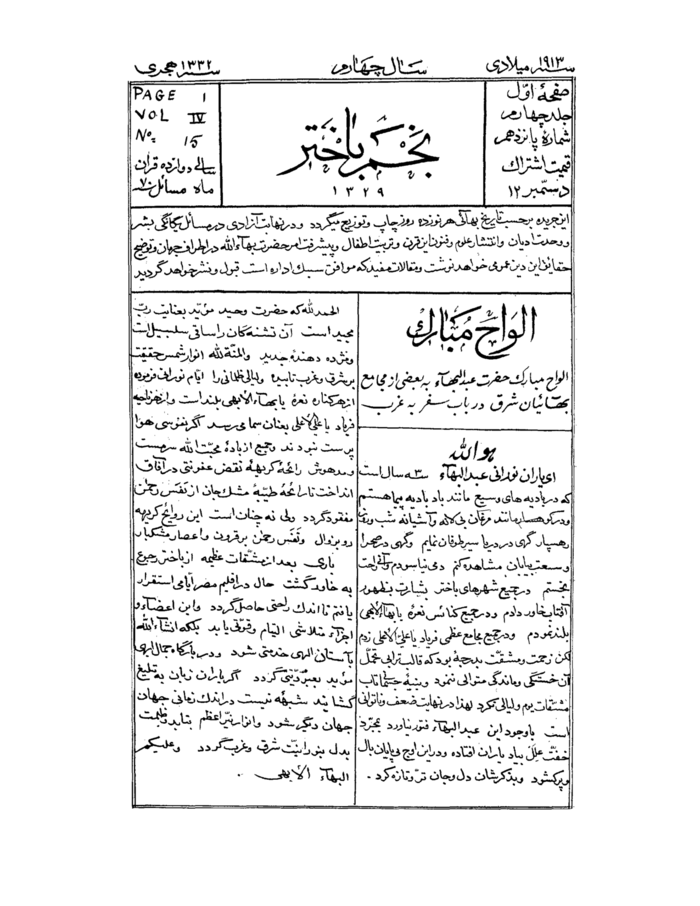 سنه ۱۹۱۳ میلادی
سال چهارم
سنه ۱۳۳۲ هجری
صفحهٔ اوّل
جلد چهارم
شمارهٔ پانزدهم
قیمت اشتراک
دسمبر ۱۲
نجم باختر
۱۳۲۹
PAGE 1
VOL IV
No. 15
سالی دوازده قران
ماه مسائل ۷۰
این جریده برحسب تاریخ بهائی هر نوزده روز چاپ و توزیع میگردد و در نهایت آزادی در مسائل یگانگی بشر
و وحدت ادیان و انتشار علوم و فنون این قرن و تربیت اطفال و پیشرفت امر حضرت بهآءالله در اطراف جهان و توضیح
حقائق این دین عمومی خواهد نوشت و مقالات مفید که موافق سبک اداره است قبول و نشر خواهد گردید
الواح مبارک
الواح مبارک حضرت عبدالبهآء به بعضی از مجامع
بهائیان شرق در باب سفر به غرب
هو الله
ای یاران نورانی عبدالبهآء ۳ سه سال است
که در بادیه های وسیع مانند باد بادیه پیما هستم
و در کوهسار مانند مرغان بی لانه و آشیانه شب و روز
رهسپار گهی در دریا سیر طوفان نمایم و گهی در صحرا
وسعت بی‌پایان مشاهده کنم دمی نیاسودم و آنی راحت
نجستم در جمیع شهرهای باختر بشارت بظهور
آفتاب خاور دادم و در جمیع کنائس نعرهٔ یا بهآءالأبهی
بلند نمودم و در جمیع مجامع عظمی فریاد یا علی الأعلی زدم
لکن زحمت و مشقّت بدرجهٔ بود که قالب ترابی تحمّل
آن خستگی و ماندگی متوالی ننمود و بنیهٔ جسمانی تاب
مشقّات یوم و لیالی نکرد لهذا در نهایت ضعف و ناتوانی
است باوجود این عبدالبهآء فتور نیاورد بمجرّد
خفّت علل بیاد یاران افتاده و در این اوج بی پایان بال
و پر گشود و بذکرشان دل و جان تر و تازه کرد .
الحمد لله که حضرت وحید مؤیّد بعنایت ربّ
مجید است آن تشنه گان را ساقی سلسبیل است
و مژده دهندهٔ جدید والمنّة لله انوار شمس حقیقت
بر شرق و غرب تابیده و لیالی ظلمانی را ایّام نورانی فرموده
از هر کناره نعرهٔ یا بهآءالأبهی بلند است و از هر ناحیه
فریاد یا علی الأعلی بعنان سما میرسد اگر نفوسی هوا
پرست نبردند و جمیع از بادهٔ محبّت الله سرمست
و مدهوش رائحهٔ کریههٔ نقض عفونتی در آفاق
انداخت تا رائحهٔ طیّبهٔ مشک جان از نَفَس رحمن
مفقود گردد ولی نه چنان است این روایح کریهه
رو بزوال و نَفَس رحمن بر قرون و اعصار مشکبار
باری بعد از مشقّات عظیمه از باختر رجوع
به خاور گشت حال در اقلیم مصر ایّامی استقرار
یافتم تا اندک راحتی حاصل گردد و این اعضاء و
اجزآء متلاشی التیام و قوّتی یابد بلکه انشآءالله
بآستان الهی خدمتی شود و در بارگاه جمال ابهی
مؤیّد بعبودیّتی گردد اگر یاران زبان به تبلیغ
گشایند شبهه نیست در اندک زمانی جهان
جهان دیگر شود و انوار نیّر اعظم بتابد و ظلمت
بدل بنورانیّت شرق و غرب گردد وعلیکم
البهآء الأبهی .